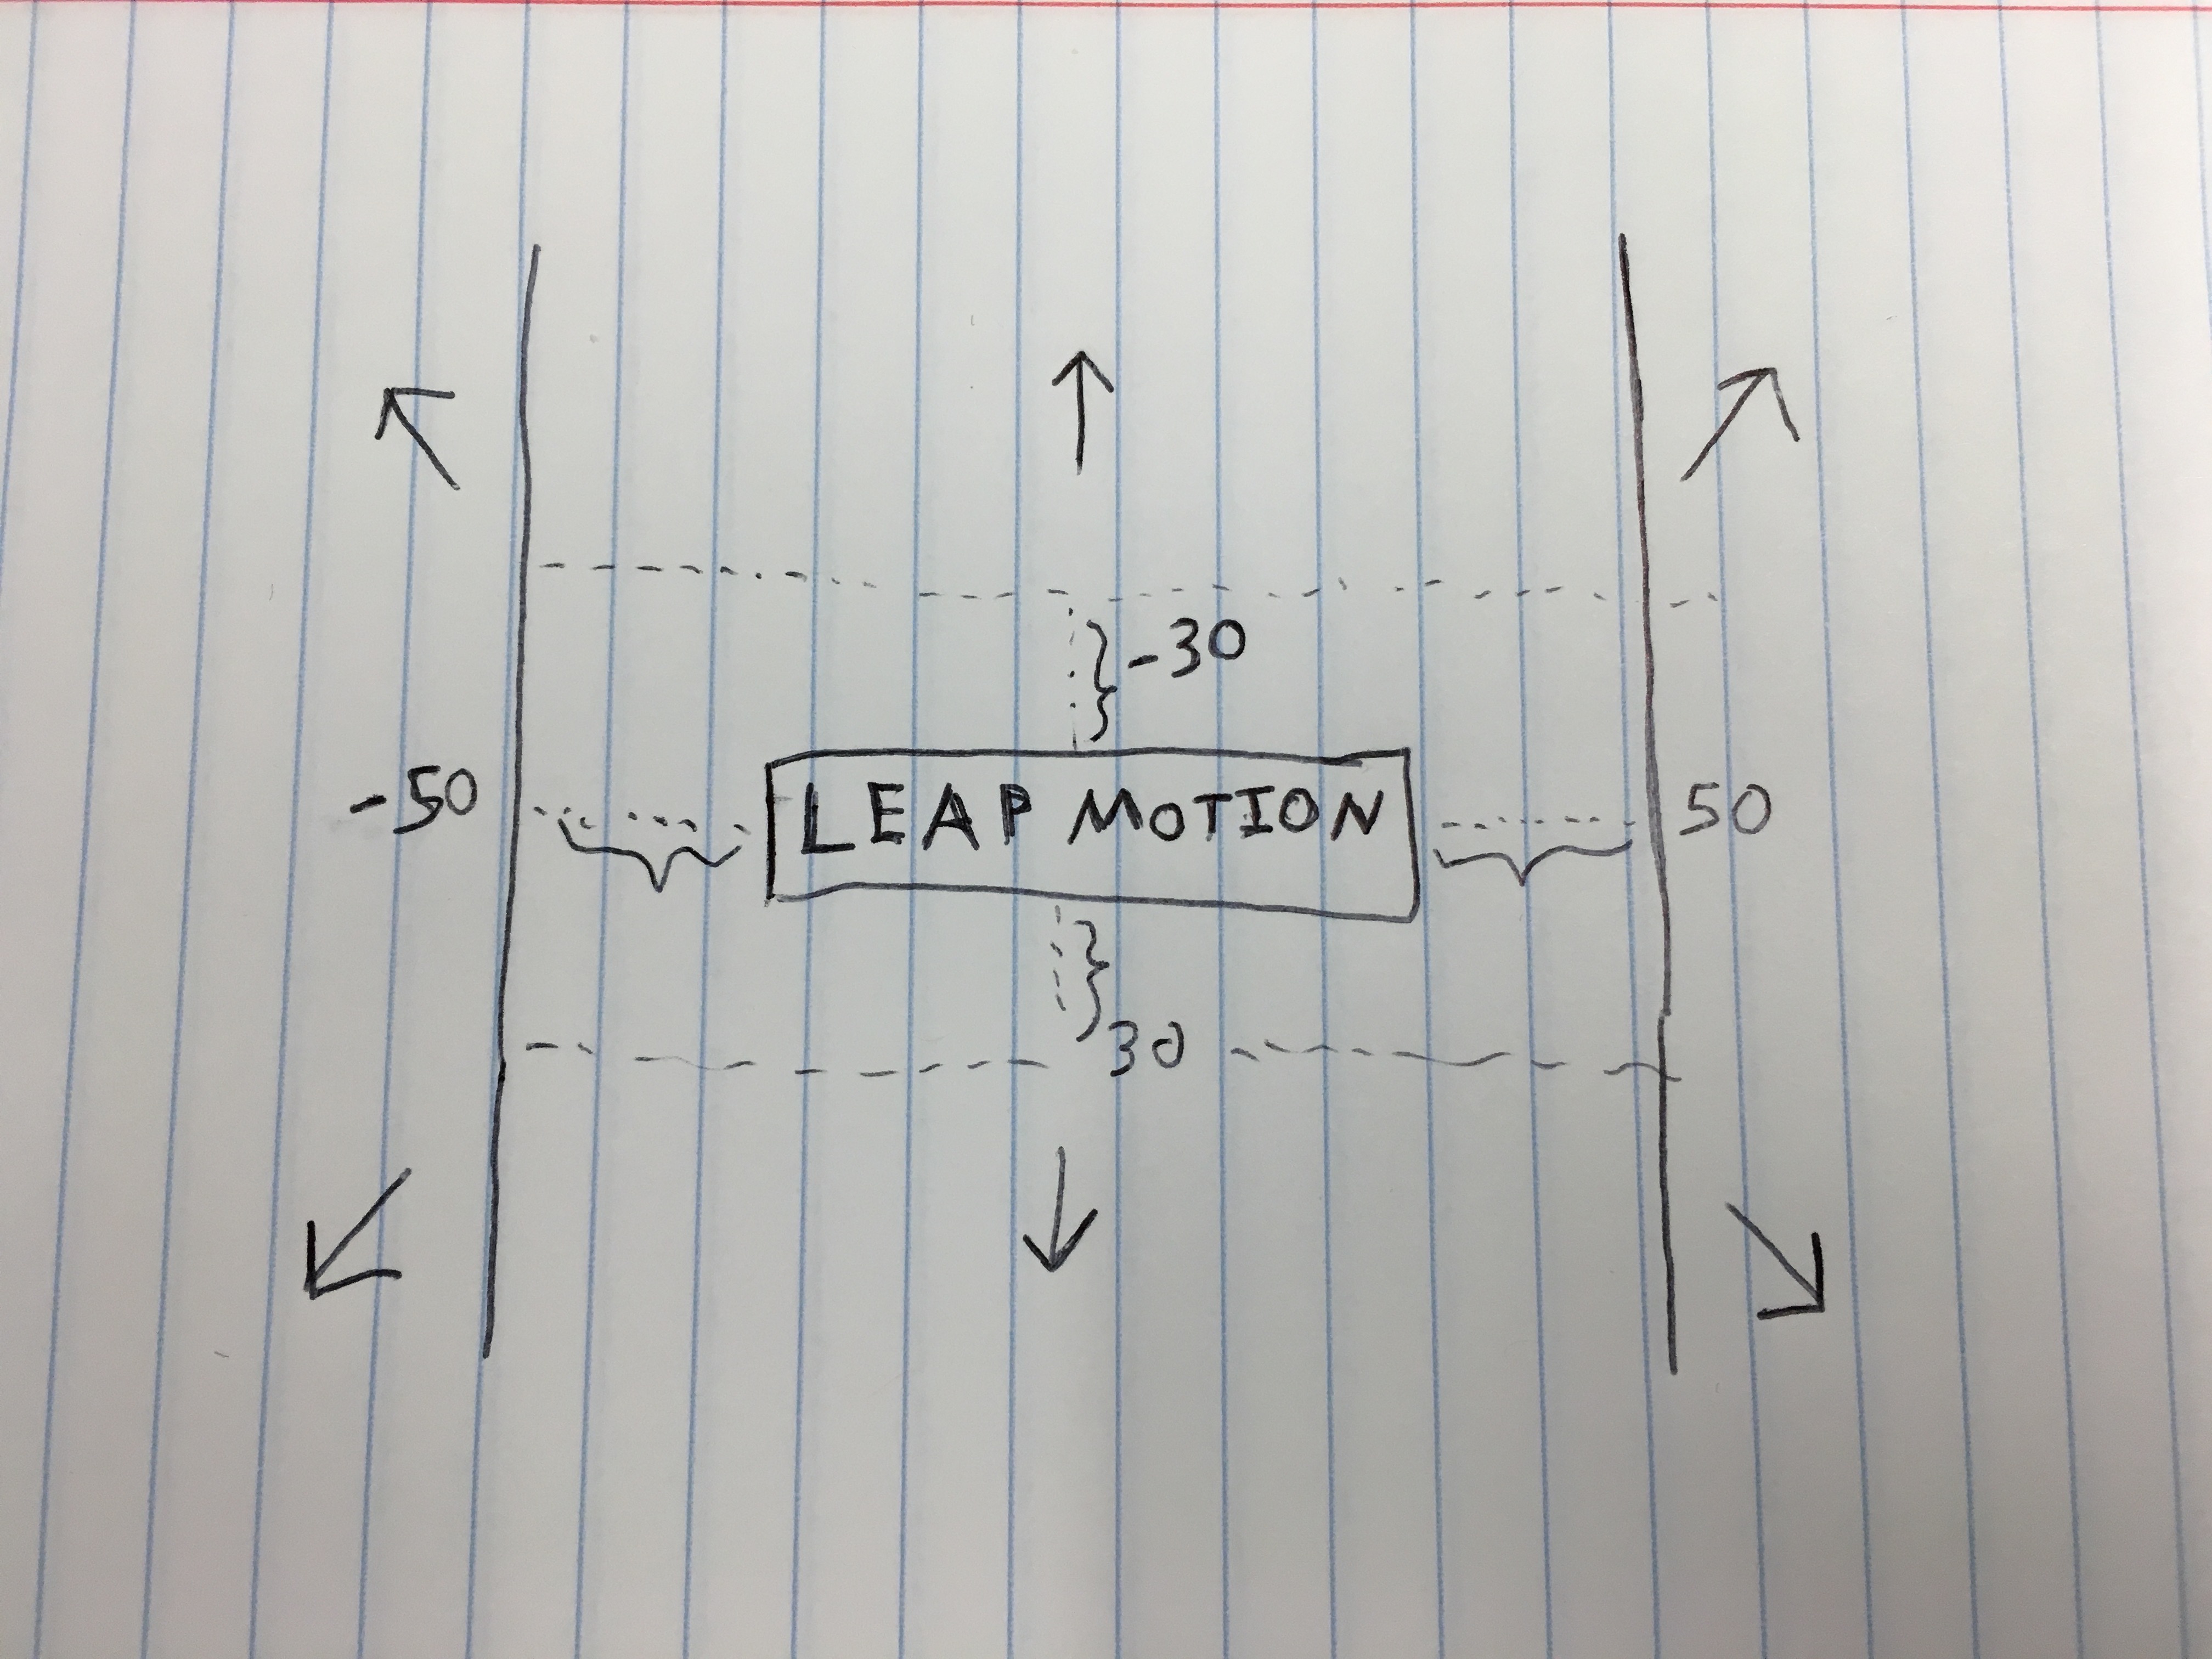 -30
-50 LEAP MOTION 50
30